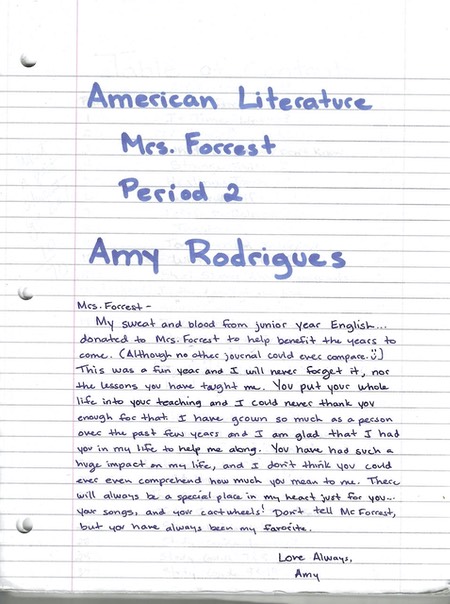 American Literature
Mrs. Forrest
Period 2
Amy Rodrigues
Mrs. Forrest -
My sweat and blood from junior year English...
donated to Mrs. Forrest to help benefit the years to
come. (Although no other journal could ever compare. :))
This was a fun year and I will never forget it, nor
the lessons you have taught me. You put your whole
life into your teaching and I could never thank you
enough for that. I have grown so much as a person
over the past few years and I am glad that I had
you in my life to help me along. You have had such a
huge impact on my life, and I don't think you could
ever even comprehend how much you mean to me. There
will always be a special place in my heart just for you...
your songs, and your cartwheels! Don't tell Mr. Forrest,
but you have always been my favorite.
Love Always,
Amy